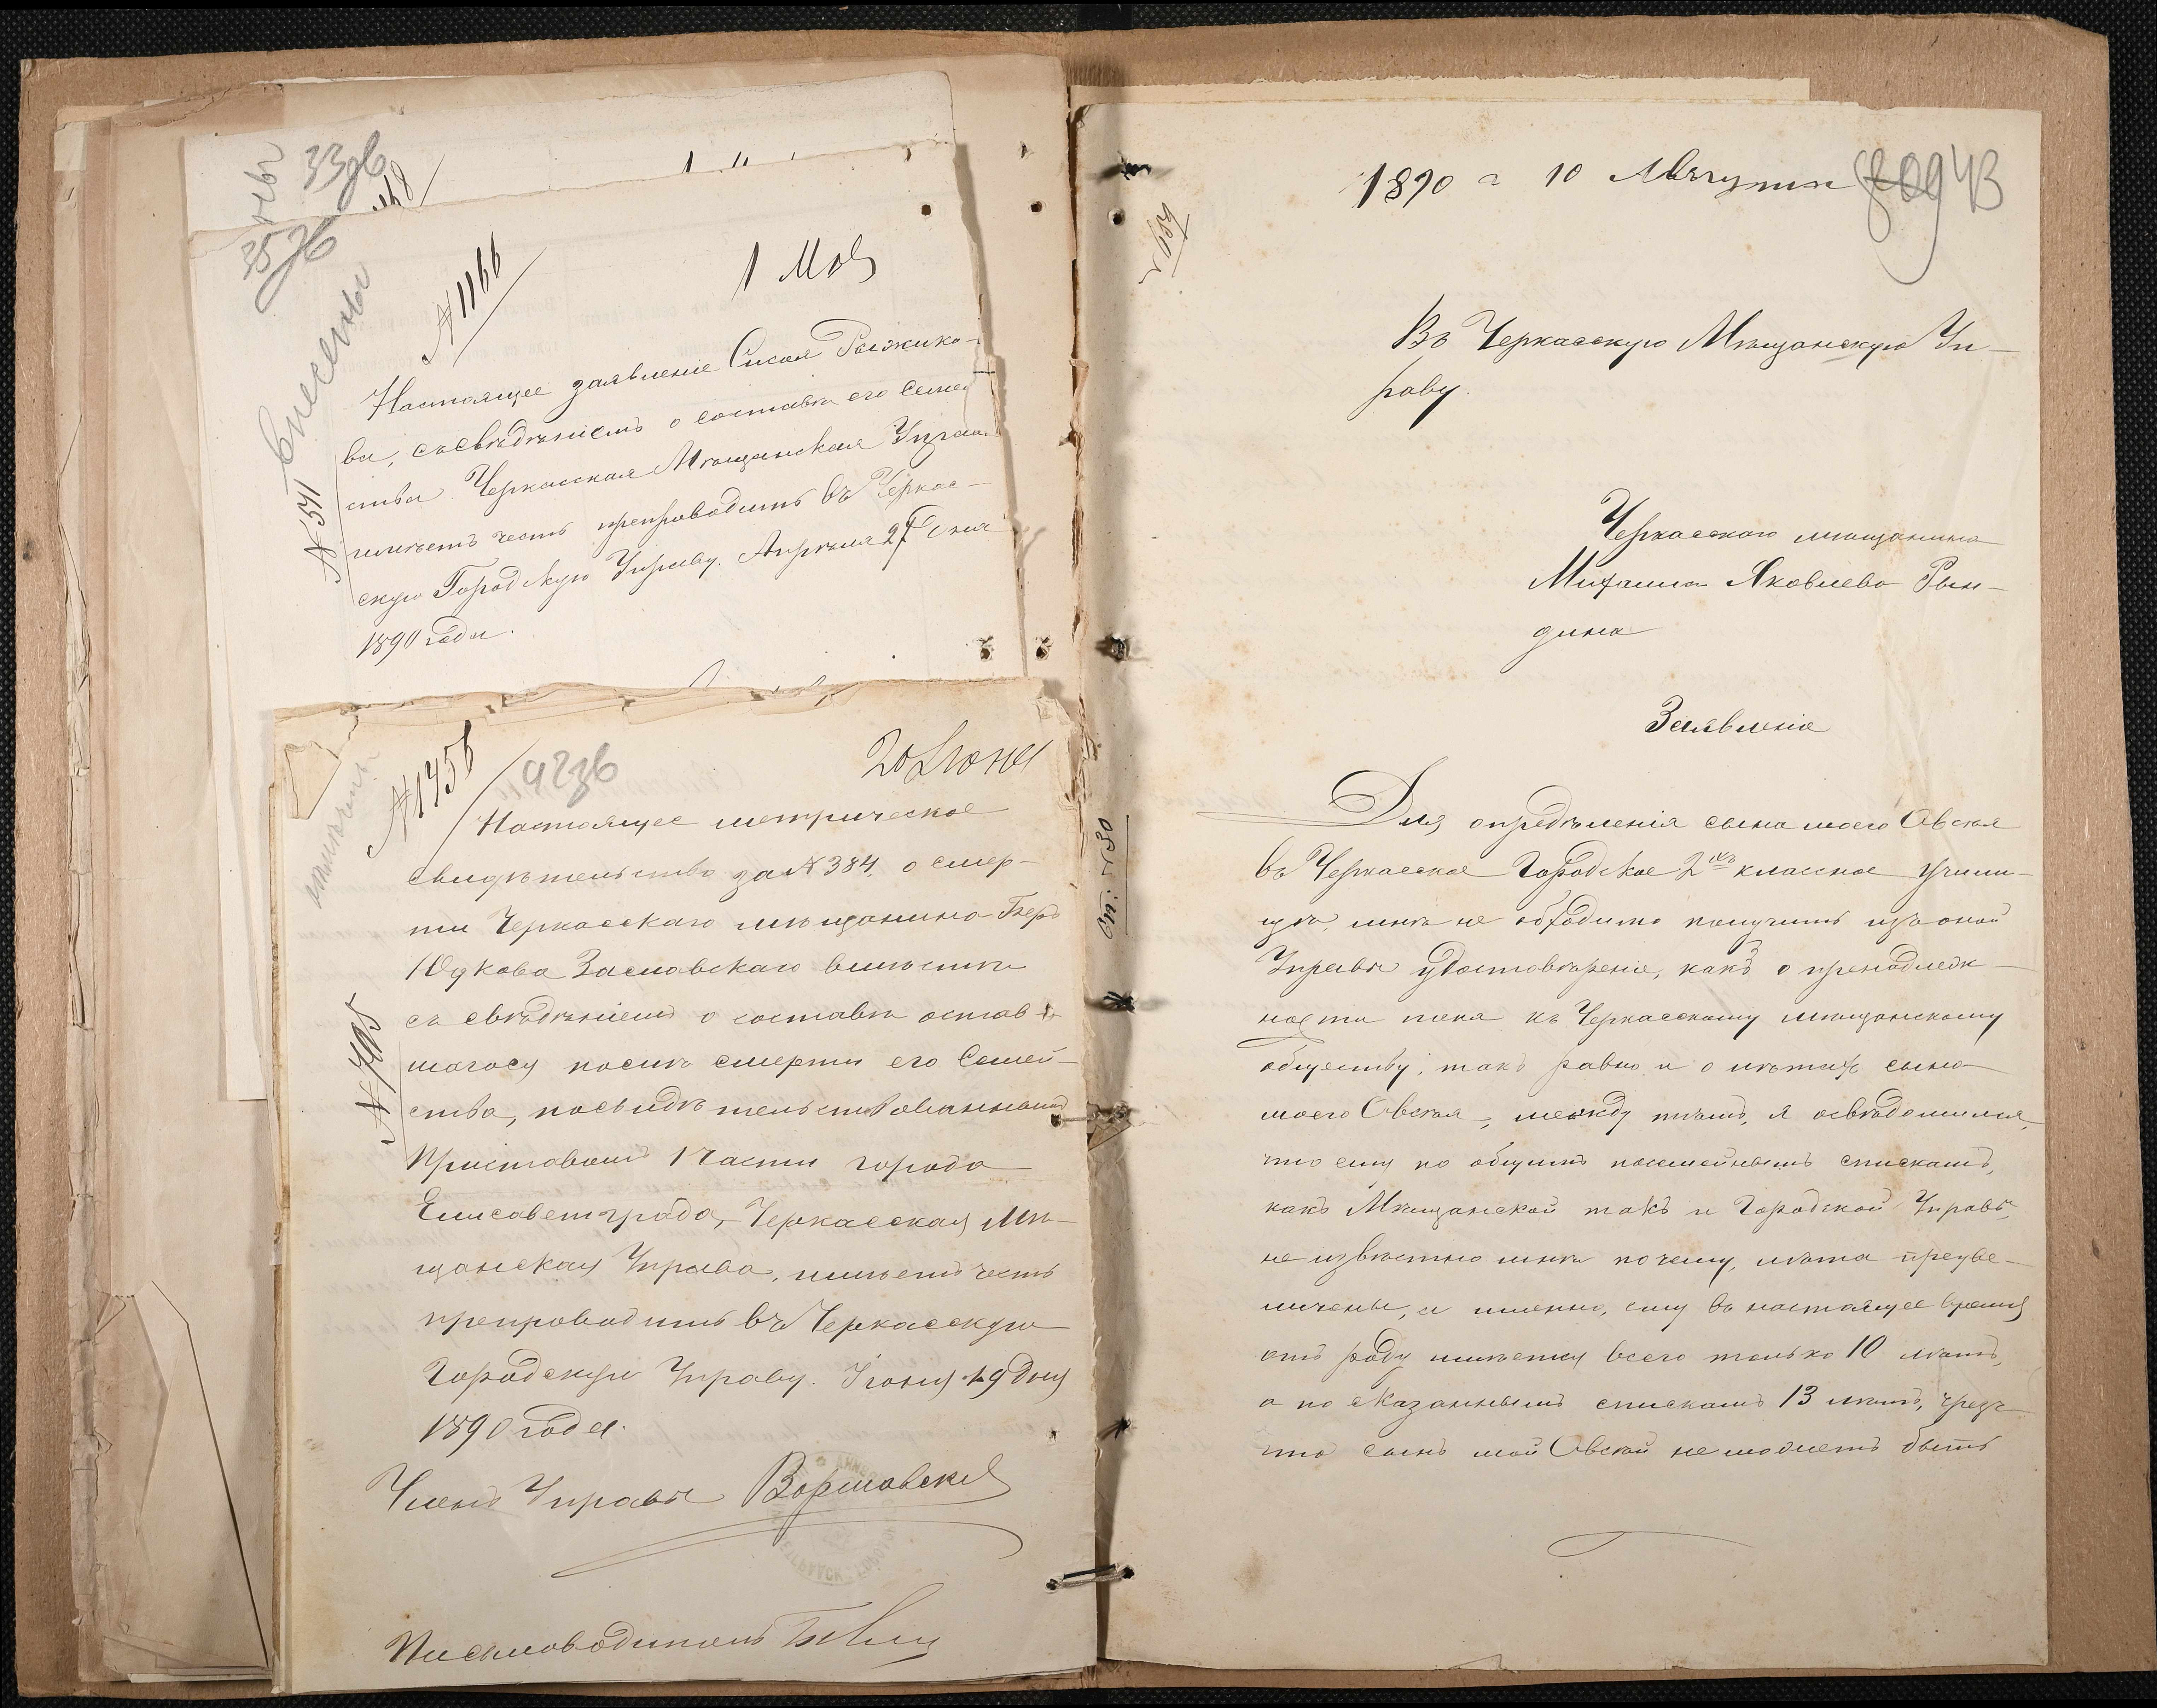 33 зв
35 зв
внесены
№ 1166
1 Мая
Настоящее заявленіе Рыжико-
ва, съ свѣдѣніемъ о составѣ его семей
ства Черкасская Мѣщанская Управа
имѣетъ честь препроводить въ Черкас-
скую Городскую Управу. Апрѣля 27 дня
1890 года.
№ 541
№ 1456
42 зв
20 Іюня
Настоящее метрическое
свидѣтельство за № 384, о смер-
ти Черкасскаго мѣщанина Беръ
Юдкова Заславскаго вмѣстѣ
съ свѣдѣніемъ о составѣ остав-
шагося послѣ смерти его Семей-
ства, посвидѣтельствованнымъ
Приставомъ 1 части города
Елисаветграда, Черкасская Мѣ-
щанская Управа, имѣетъ честь
препроводить въ Черкасскую
Городскую Управу. Іюня 19 дня
1890 года.
№ 705
Членъ Управы Варшавскій
Письмоводитель
1890 г 10 Августа
43
Въ Черкасскую Мѣщанскую Уп-
раву.
Черкасскаго мѣщанина
Михаила Яковлева Рын-
дина
Заявленіе
Для опредѣленія сына моего Овсея
въ Черкасское Городское 2хъ классное учили-
ще, мнѣ не обходимо получить изъ оной
Управы удостовѣреніе, какъ о пренадлеж-
ности меня къ Черкасскому мѣщанскому
обществу, такъ равно и о лѣтахъ сына
моего Овсея, между тѣмъ, я освѣдомился,
что ему по общимъ посемейнымъ спискамъ,
какъ Мѣщанской такъ и Городской Управъ,
не извѣстно мнѣ почему, лѣта преуве-
личены, а именно, ему въ настоящее время
отъ роду имѣется всего только 10 лѣтъ,
а по сказаннымъ спискамъ 13 лѣтъ, чрезъ
что сынъ мой Овсей не можетъ быть